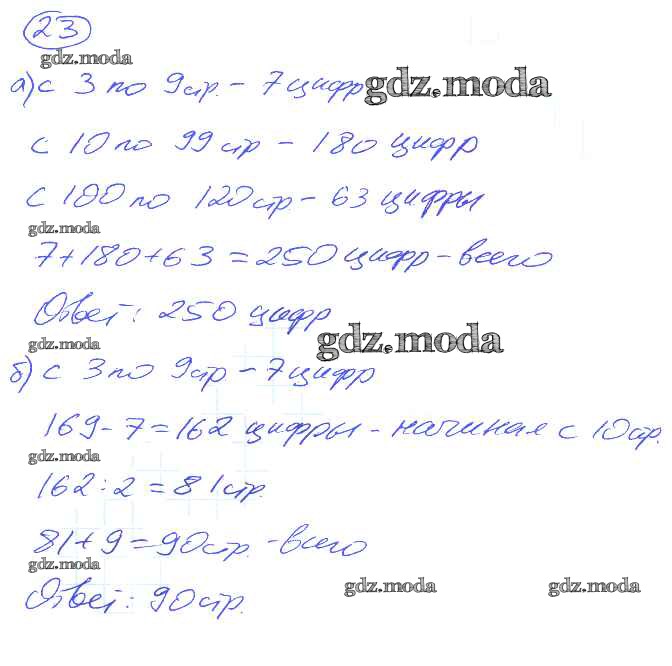 23
gdz.moda
а) с 3 по 9 стр. - 7 цифр gdz.moda
с 10 по 99 стр - 180 цифр
с 100 по 120 стр - 63 цифры
gdz.moda
7+180+63=250 цифр - всего
Ответ: 250 цифр
gdz.moda gdz.moda
б) с 3 по 9 стр - 7 цифр
169-7=162 цифры - начиная с 10 стр.
gdz.moda
162:2=81 стр.
81+9=90 стр. - всего
gdz.moda
Ответ: 90 стр. gdz.moda gdz.moda